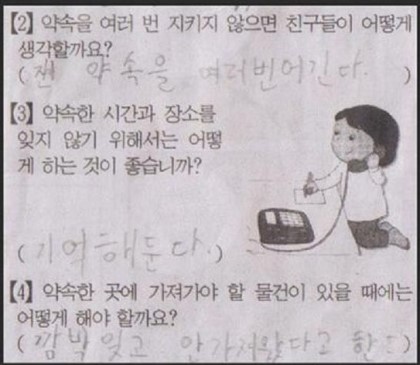 【2】 약속을 여러 번 지키지 않으면 친구들이 어떻게
생각할까요?
( 쟨 약속을 여러번어긴다. )
【3】 약속한 시간과 장소를
잊지 않기 위해서는 어떻
게 하는 것이 좋습니까?
(기억해둔다.)
【4】 약속한 곳에 가져가야 할 물건이 있을 때에는
어떻게 해야 할까요?
(깜박잊고 안가져왔다고 한다)